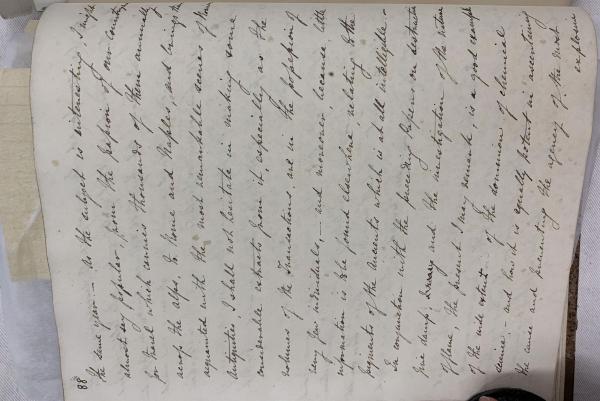 88
the same upon — As the subject is interesting, I might
almost say popular, from the passion of our Country
for travel which carries thousands of them annually
across the Alps, to Rome and Naples, and brings them
acquainted with the most remarkable scenes of
Antiquities, I shall not hesitate in making some
considerable extracts from it, especially as the
volumes of the Transactions are in the possession of
very few individuals, — and moreover, because little
information is to be found elsewhere relating to the
pigments of the ancients which is at all intelligible. —
In conjunction with the preceding Papers on destructive
fire damp, & and the investigation of the nature
of flame, the present I may remark, is a good example
of the wide extent of the dominion of chemical
science, — and how it is equally potent in ascertaining
the cause and preventing the agency of the most
explosive